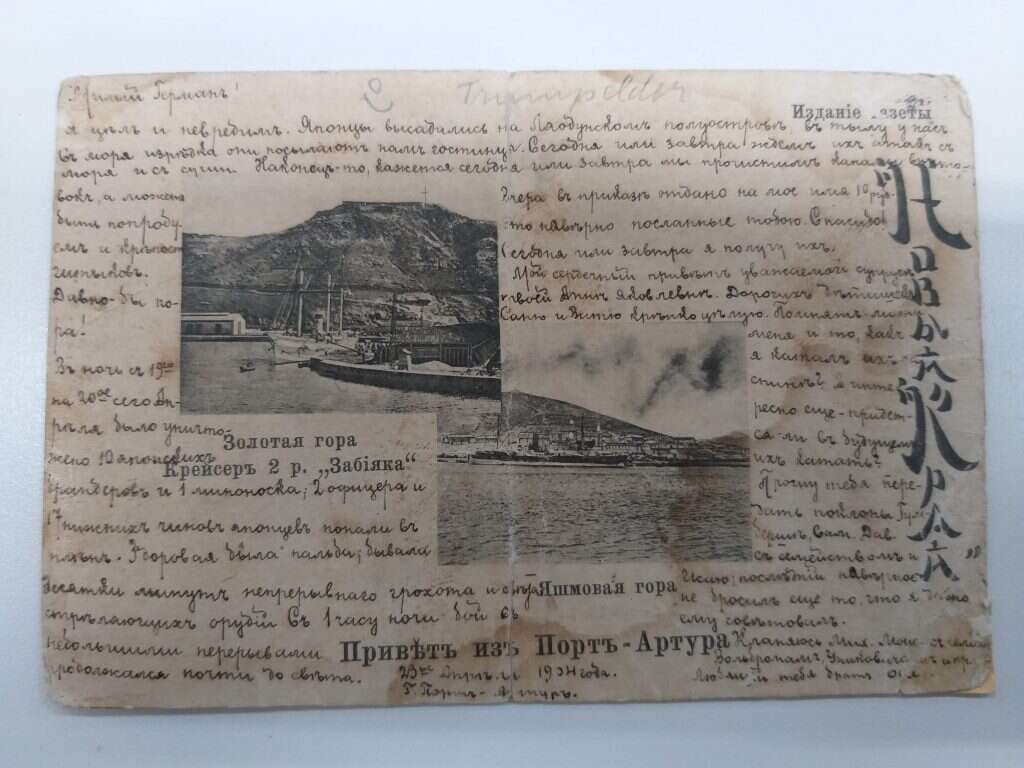 Милый Германъ!
Trumpeldor
Изданіе газеты
я цѣлъ и невредимъ. Японцы высадились на Ляодунскомъ полуостровѣ въ тылу у насъ
Съ моря изрѣдка они посылаютъ намъ гостинцы. Сегодня или завтра ждемъ ихъ атакъ съ
моря и съ суши. Наконецъ-то, кажется сегодня или завтра мы прочистимъ каналы
вокъ, а можетъ
быть попробу-
емъ и крѣпост
Давно-бы по-
ра!
Въ ночь съ 19го
на 20ое сего Ап-
рѣля было уничто-
жено 10 японскихъ
брандеровъ и 1 миноноска; 2 офицера и
17 нижнихъ чиновъ японцевъ попали въ
плѣнъ. Здоровая была пальба; бывала
десятки минутъ непрерывнаго грохота и
стрѣляющихъ орудій Съ 1 часу ночи бой съ
небольшими перерывами
продолжался почти до свѣта.
Вчера въ приказѣ отдано на мое имя 10 руб-
то навѣрно посланные тобою. Спасибо
Сегодня или завтра я получу ихъ.
Мой сердечный привѣтъ уважаемой супругѣ
твоей Аннѣ Яковлевнѣ. Дорогихъ дѣтишекъ
Саню и Витю крѣпко цѣлую. Помнятъ ли
меня и то, какъ
я каталъ ихъ
спинѣ? я инте-
ресно еще-придет-
ся-ли въ будущемъ
ихъ катать?
Прошу тебя пере-
дать поклоны
Сам. Дав.
съ семействомъ и
послѣдній навѣрно
не бросилъ еще то, что я
ему совѣтовалъ.
Кланяюсь Мих. Моис.
и пр.
Любящій тебя братъ
Золотая гора
Крейсеръ 2 р. „Забіяка“
Яшмовая гора
Привѣтъ изъ Портъ-Артура
23го Апрѣля 1904 года.
Г. Портъ-Артуръ.